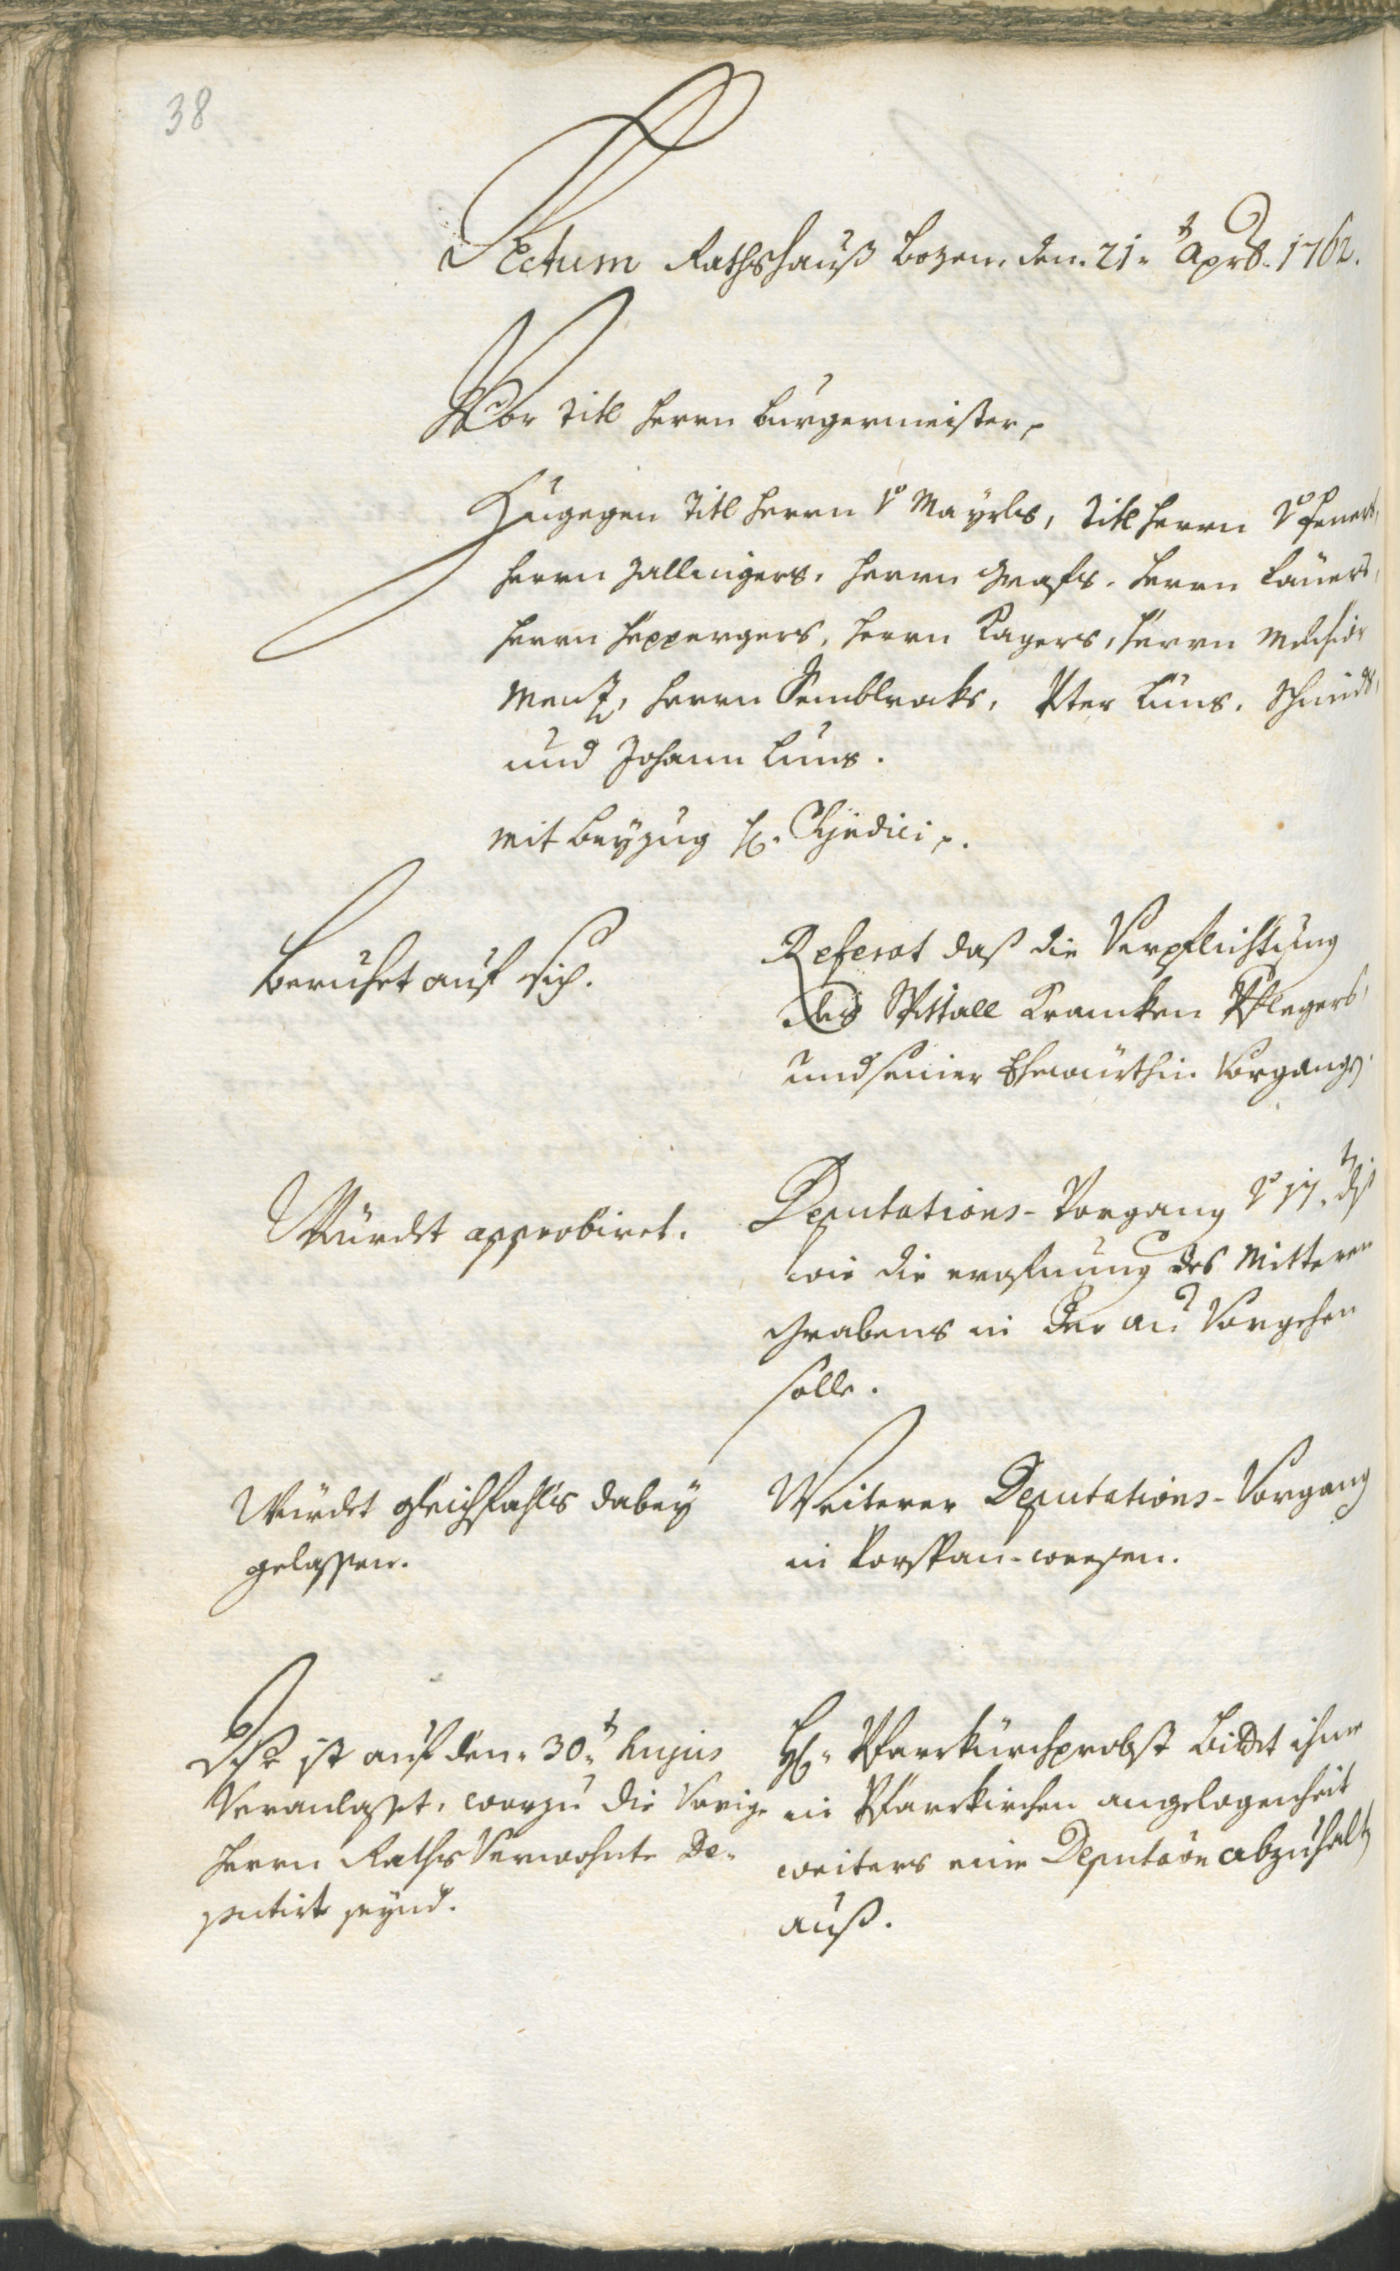 38
Actum Rathshauß Bozen, den. 21.t Aprl. 1762.
Vor Titl Herrn Burgermeister,
Zugegen Titl Herrn Dr Mayrls, Titl Herrn Dr
Herrn Zallingers, Herrn Grafs, Herrn
Herrn Heppergers, Herrn Kagers, Herrn Melchior
Menz, Herrn Semblrocks, Pter Luns, Schmidt,
und Johann Luns.
mit Beyzug H. Syndici
Beruhet auf sich.
Referat daß die Verpflichtung
des Spittall Krancken Pflegers,
und seiner Ehewürthin Vorgangen.
Würdet approbiret.
Deputations-Vorgang vom 17.t dß
wie die erofnung des Mitteren
Grabens in der au Vorgehen
solle.
Würdet gleichfahls dabey
gelassen.
Weiterer Deputations-Vorgang
in Vorspan-weesen.
Dise ist auf den 30.t hujus
Veranlasset, worzu die Vorige
Herrn Raths Verwohnte De-
putirt seynd.
H. Pfarrkürchprobst Bittet ihme
in Pfarrkirchen angelogenheit
weiters eine Deputaon abzuhalten
auß.